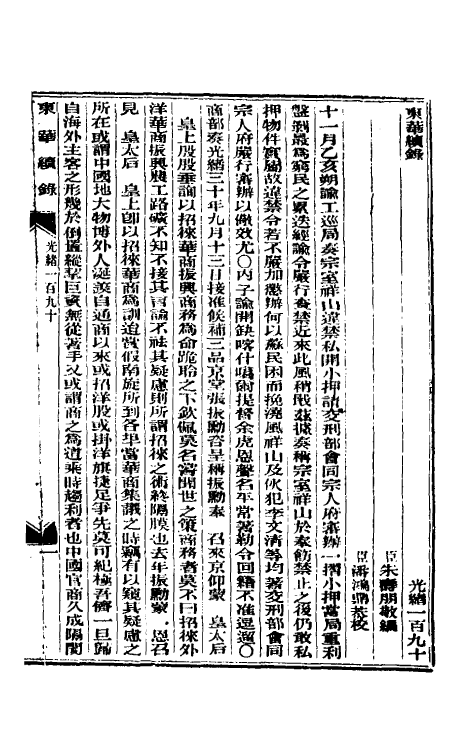 東華續錄
光緒一百九十
臣朱壽朋敬編
臣潘鴻鼎恭校
十一月乙亥朔諭工巡局奏宗室祥山違禁私開小押請交刑部會同宗人府審辦一摺小押當局重利
盤剝最為窮民之累迭經諭令嚴行查禁近來此風稍戢茲據奏稱宗室祥山於奉飭禁止之後仍敢私
押物件實屬故違禁令若不嚴加懲辦何以蘇民困而挽澆風祥山及伙犯李文清等均著交刑部會同
宗人府嚴行審辦以儆效尤〇丙子諭開缺喀什噶爾提督余虎恩聲名平常著勒令回籍不准逗遛〇
商部奏光緒三十年九月十三日接准候補三品京堂張振勳咨呈稱振勳奉 召來京仰蒙 皇太后
皇上殷殷垂詢以招徠華商振興商務為命跪聆之下欽佩莫名嘗聞世之策商務者莫不曰招徠外
洋華商振興農工路礦不知不接其言論不祛其疑慮則所謂招徠之術終隔膜也去年振勳蒙 恩召
見 皇太后 皇上卽以招徠華商為訓迨賞假南旋所到各埠當華商集議之時輒有以窺其疑慮之
所在或謂中國地大物博外人涎羨自通商以來或招洋股或掛洋旗捷足爭先莫可紀極吾儕一旦歸
自海外主客之形幾於倒置縱挈巨貲無從著手又或謂商之為道乘時趨利者也中國官商久成隔閡
東華續錄
光緒一百九十
一